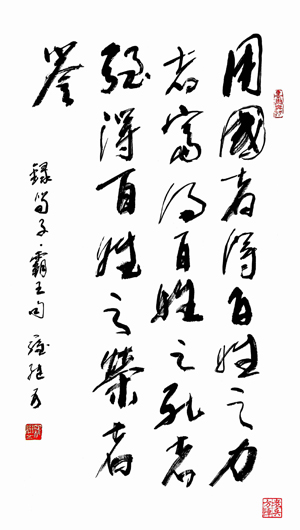 用國者得百姓之力
者富得百姓之死者
强得百姓之榮者
譽
錄荀子·霸王句